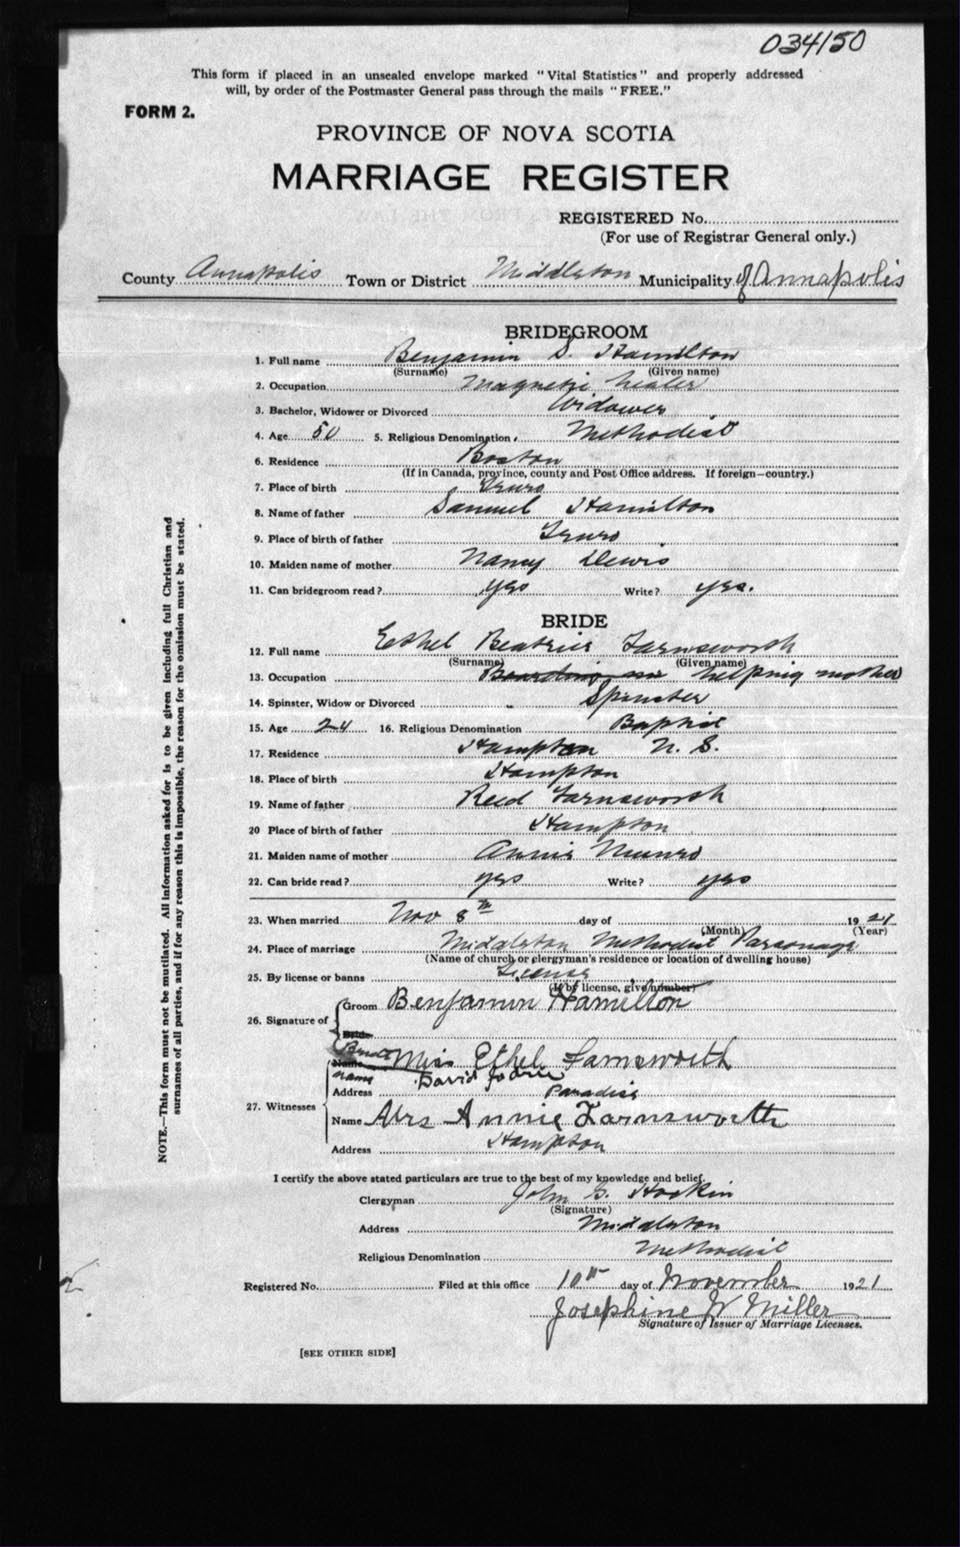 034150
This form if placed in an unsealed envelope marked "Vital Statistics" and properly addressed
will, by order of the Postmaster General pass through the mails "FREE."
FORM 2.
PROVINCE OF NOVA SCOTIA
MARRIAGE REGISTER
REGISTERED No.
(For use of Registrar General only.)
County Annapolis Town or District Middleton Municipality of Annapolis
BRIDEGROOM
1. Full name Benjamin S. Hamilton
(Surname) (Given name)
2. Occupation Magnetic healer
3. Bachelor, Widower or Divorced Widower
4. Age 50 5. Religious Denomination Methodist
6. Residence Boston
(If in Canada, province, county and Post Office address. If foreign—country.)
7. Place of birth Truro
8. Name of father Samuel Hamilton
9. Place of birth of father Truro
10. Maiden name of mother Nancy
11. Can bridegroom read? yes Write? yes.
BRIDE
12. Full name Ethel Beatrice Farnsworth
(Surname) (Given name)
13. Occupation helping mother
14. Spinster, Widow or Divorced Spinster
15. Age 24 16. Religious Denomination Baptist
17. Residence Hampton N. S.
18. Place of birth Hampton
19. Name of father Reed Farnsworth
20 Place of birth of father Hampton
21. Maiden name of mother Annie Munro
22. Can bride read? yes Write? yes
23. When married Nov 8th day of 1921
(Month) (Year)
24. Place of marriage Middleton Methodist Parsonage
(Name of church or clergyman's residence or location of dwelling house)
25. By license or banns License
(If by license, give number)
26. Signature of Groom Benjamin Hamilton
Bride
Bride Miss Ethel Farnsworth
Name
name David
Address Paradise
27. Witnesses
Name Mrs Annie Farnsworth
Address Hampton
I certify the above stated particulars are true to the best of my knowledge and belief.
Clergyman John G. Hockin
(Signature)
Address Middleton
Religious Denomination Methodist
Registered No. Filed at this office 10th day of November 1921
Josephine W Miller
Signature of Issuer of Marriage Licenses.
[SEE OTHER SIDE]
NOTE.—This form must not be mutilated. All information asked for is to be given including full Christian and
surnames of all parties, and if for any reason this is impossible, the reason for the omission must be stated.